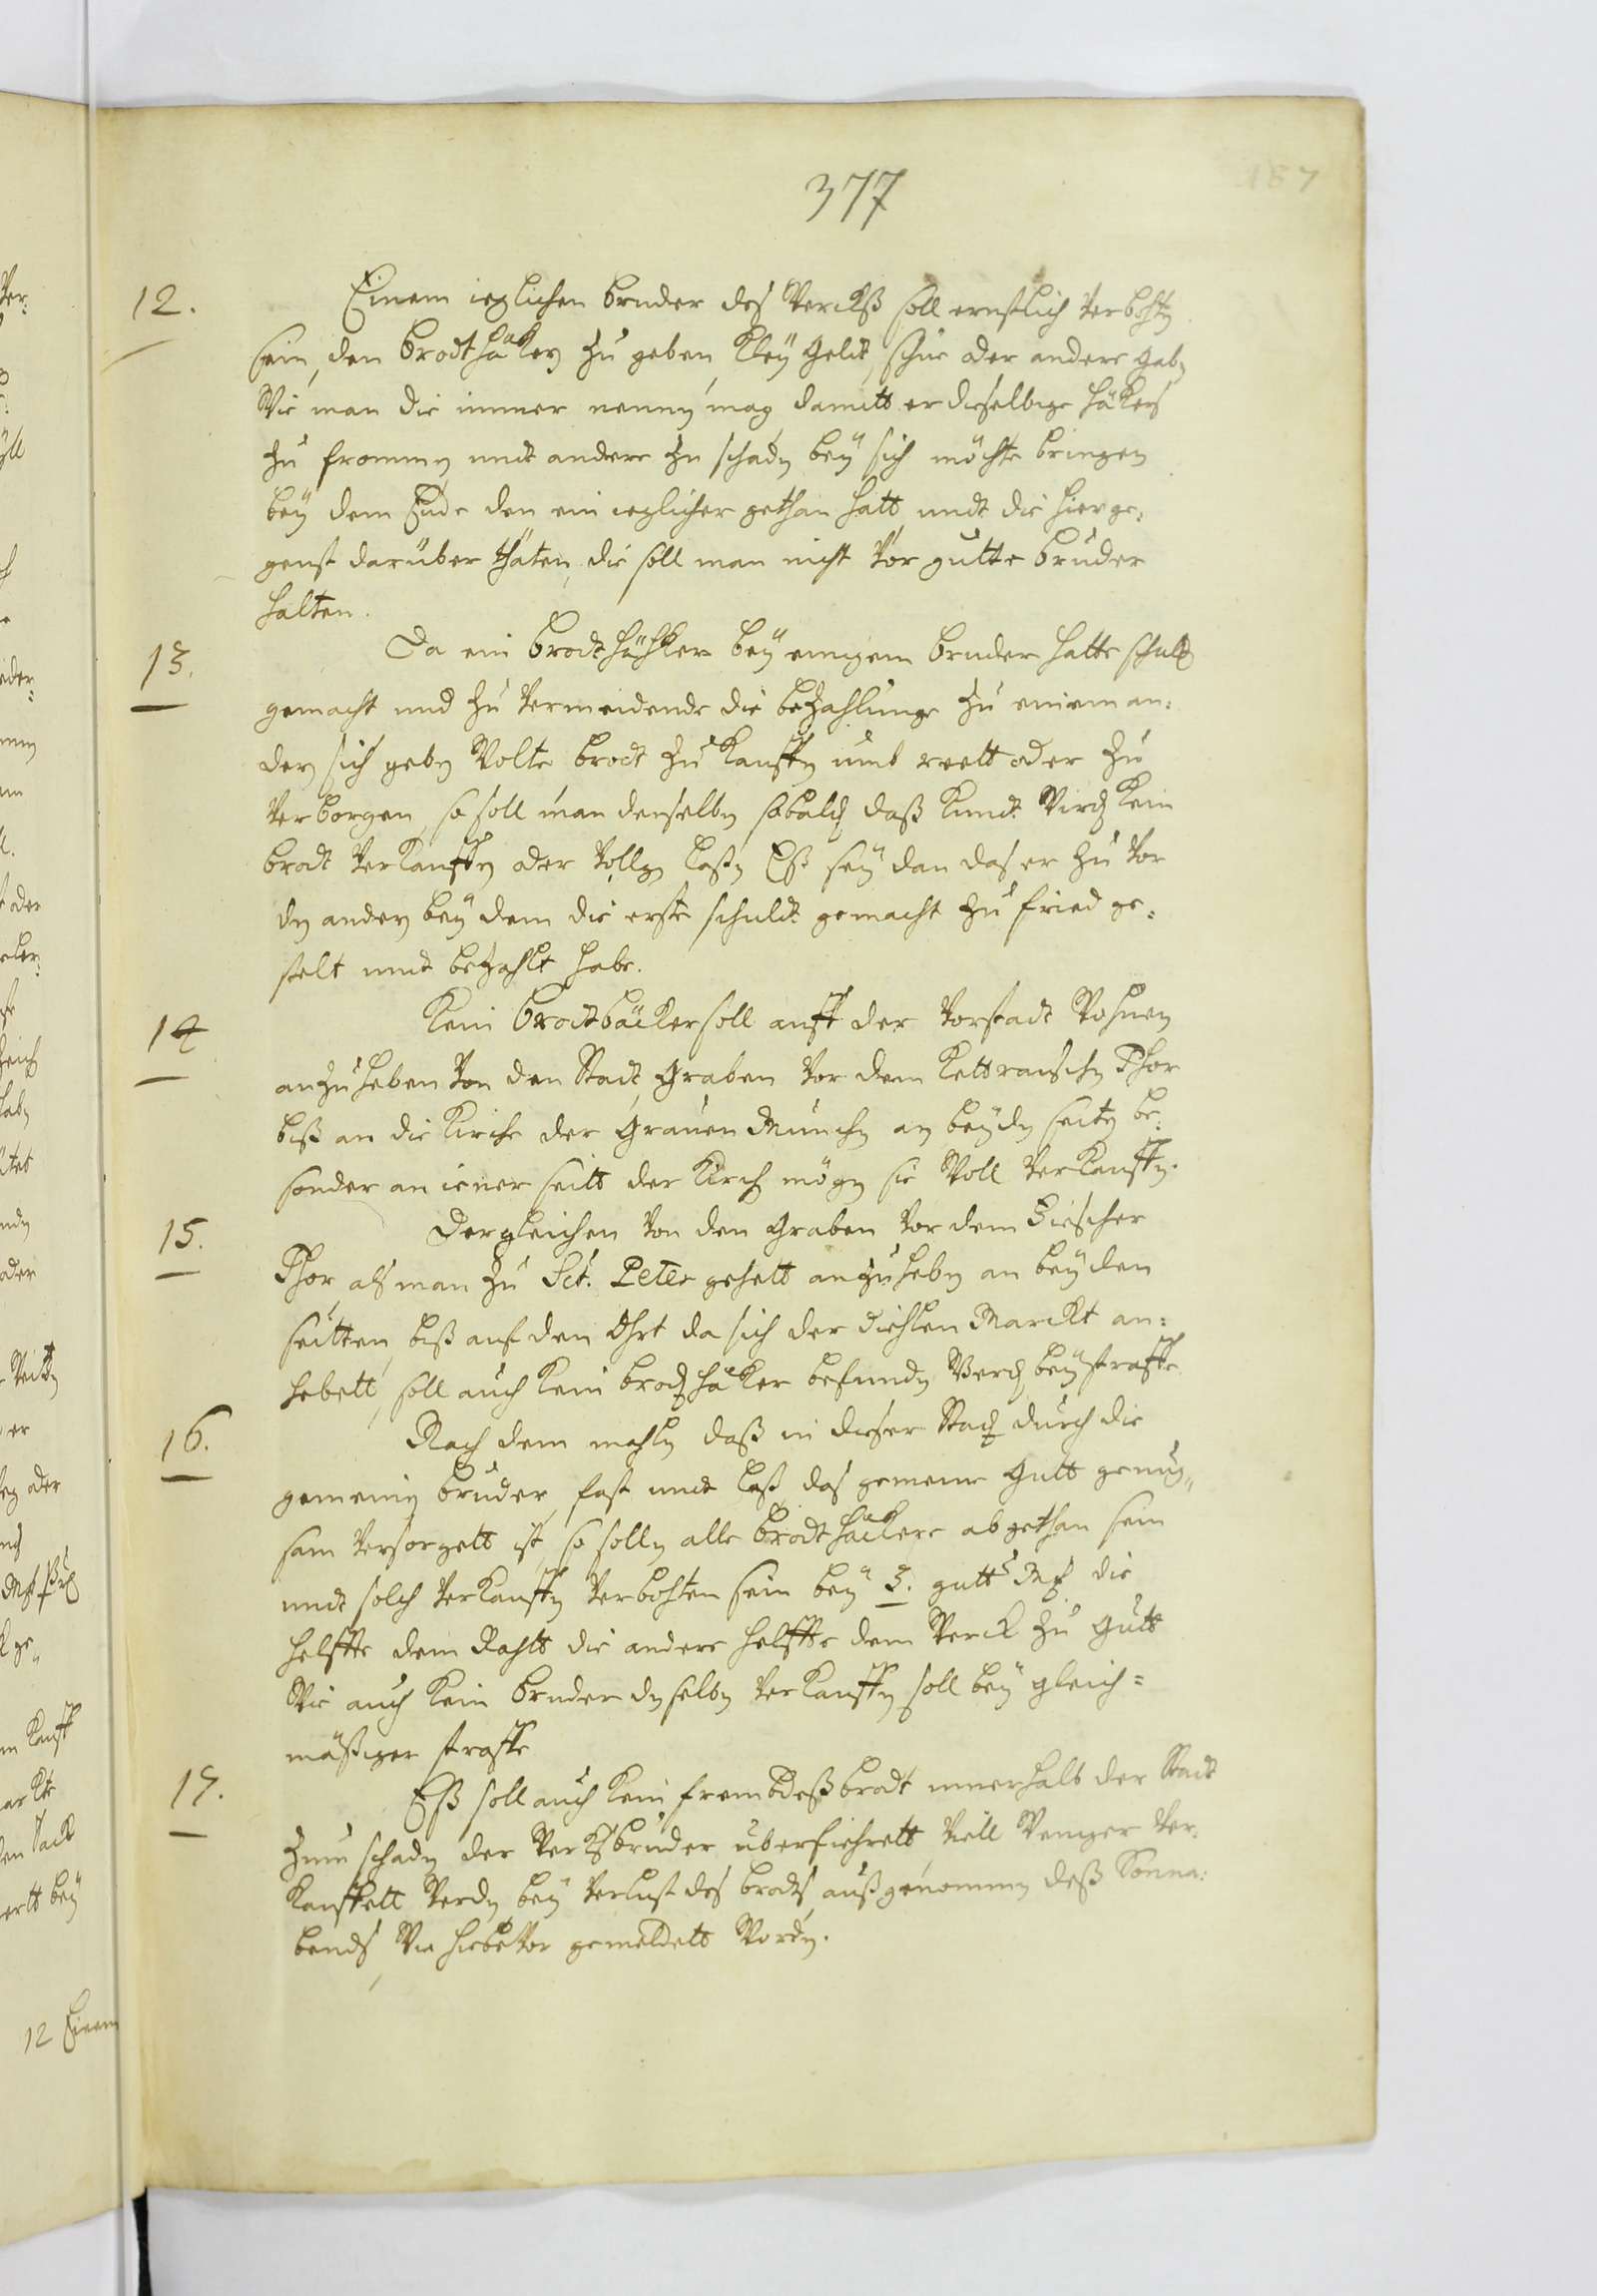 377
187
12. Einem ieglichen bruder des Wercks soll ernstlich verbohten
sein, den brodthäkern zu geben kley geldt, schue oder andere gaben
Wie man die immer nennen mag, damitt er dieselbige häkers
zu frommen undt andere zu schaden bey sich möchte bringen
bey dem Eude den ein ieglicher gethan hatt, undt die hierge¬
genst darüber thäten, die soll man nicht vor gutte brüder
halten.
13. Da ein brodt häcker bey einigem bruder hatte schult
gemacht und zu vermeidende die bezahlunge zu einem an¬
dern sich geben Wolte brodt zu kauffen umb reett oder zu
verborgen, so soll man denselben sobaldt daß kundt Wirdt kein
brodt verkauffen oder vollgen lassen Eß sey dan das er zu vor
den andern bey dem die erste schuldt gemacht zu fried ge¬
stelt undt bezahlt habe.
14 Kein brodtbäcker soll auff der vorstadt Wohnen
anzuheben von den Stadt Graben vor dem Kettraischen Thor
biß an die Kirche der Grauen Münche an beyden seiten be¬
sonder an iener seitt der Kirch mögen sie Woll verkauffen.
15. Dergleichen von den Graben vor dem Ziescher
Thor als man zu Sct. Peter gehett anzuheben an beyden
seitten, biß auf den Ohrt da sich der diehlen Marckt an¬
hebett, soll auch kein brodt häker befunden Werden bey straffe
16. Nach dem mahlen daß in dieser Stadt durch die
gemeine brüder, fast undt laß, das gemeine Gutt genug¬
sam versorgett ist, so sollen alle brodthäckere abgethan sein
undt solch verkauffen verbohten sein bey 3. gutte Mk die
helffte dem Rahtt die andere helffte dem Werck zu Gutt
Wie auch kein bruder denselben verkauffen soll bey gleich¬
mäßiger straffe
17. Eß soll auch kein frembdeß brodt innerhalb der Stadt
zum schaden der Werckbrüder überfiehrett, Viell Weniger ver¬
kauffett Werden bey verlust des brodts, außgenommen deß Sonna¬
bends, Wie hiebevor gemeldett Worden.
12 Einem